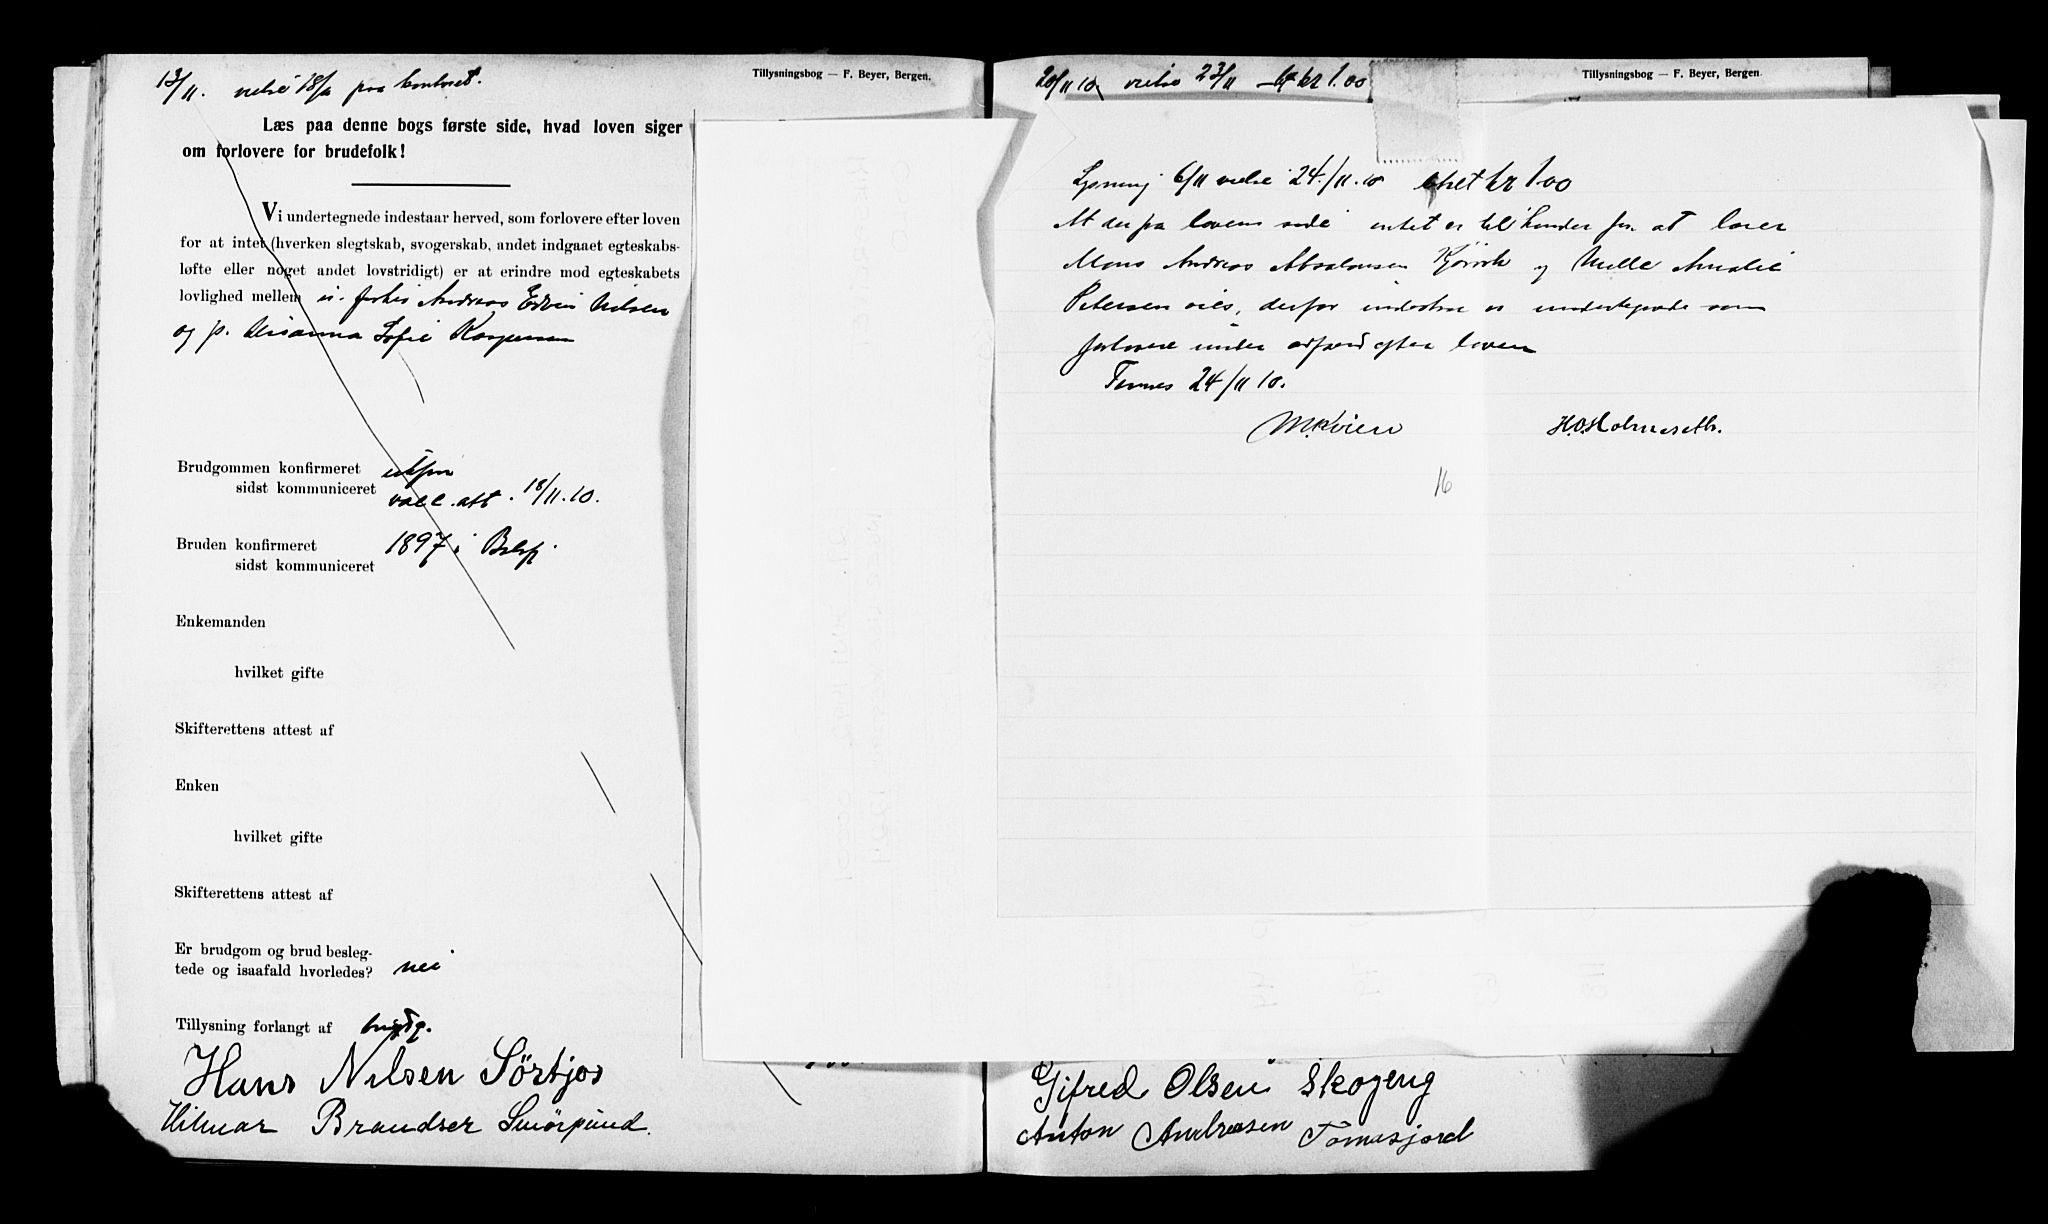 13/11. vielse 18/11 paa kontoret.
Tillysningsbog — F. Beyer, Bergen.
Læs paa denne bogs første side, hvad loven siger
om forlovere for brudefolk!
Vi undertegnede indestaar herved, som forlovere efter loven
for at intet (hverken slegtskab, svogerskab, andet indgaaet egteskabs-
løfte eller noget andet lovstridigt) er at erindre mod egteskabets
lovlighed mellem Andreas Edvin Nilsen
og p. Sofie Kaspersen
Brudgommen konfirmeret
sidst kommuniceret vacc. att. 18/11.10.
Bruden konfirmeret 1897 i Balsfj.
sidst kommuniceret
Enkemanden
hvilket gifte
Skifterettens attest af
Enken
hvilket gifte
Skifterettens attest af
Er brudgom og brud besleg-
tede og isaafald hvorledes? nei
Tillysning forlangt af brudg.
Hans Nilsen Sörtjos
Hilmar Brandser Smörsund.
20/11 10, vielse 23/11 kr 1.00
Tillysningsbog — F. Beyer, Bergen.
Lysning 6/11 vielse 24./11.10 kr 1.00
At der fra lovens side intet er til hinder for at lade
Mons Andreas Absalonsen og Amalie
Petersen vies, derfor indestaar vi undertegnede som
forlovere under ansvar efter loven
24/11 10.
M. Kvien H.O. Holmeseth.
16
Gifred Olsen Skogeng
Anton Andreasen Tömasjord